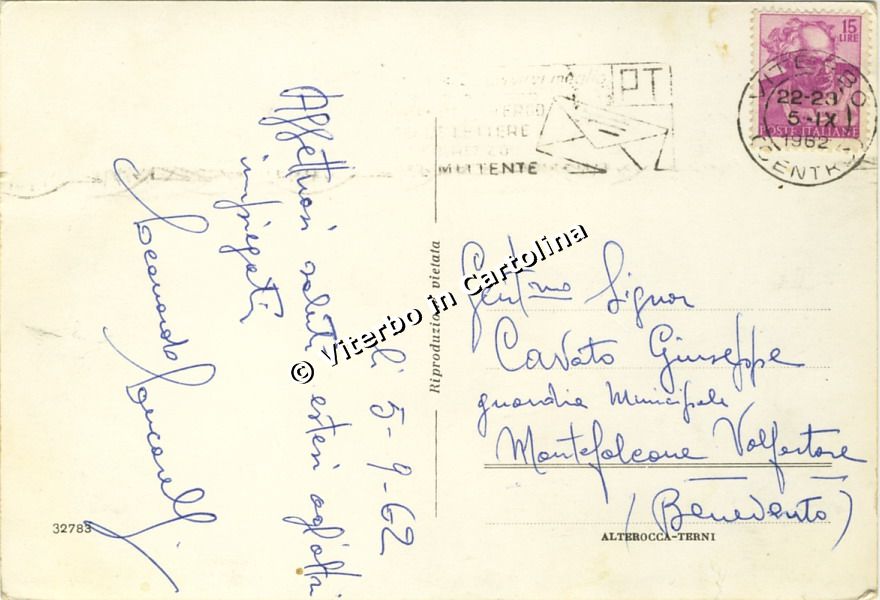 15
LIRE
POSTE ITALIANE
VITERBO
22-23
5-IX
1962
CENTRO
PT
LETTERE
MITTENTE
li 5-9-62
Affettuosi saluti estesi agl'altri
impiegati
Leonardo
© Viterbo in Cartolina
Riproduzione vietata
Gent.mo Signor
Cavoto Giuseppe
guardia Municipale
Montefalcone Valfortore
(Benevento)
32783
ALTEROCCA-TERNI